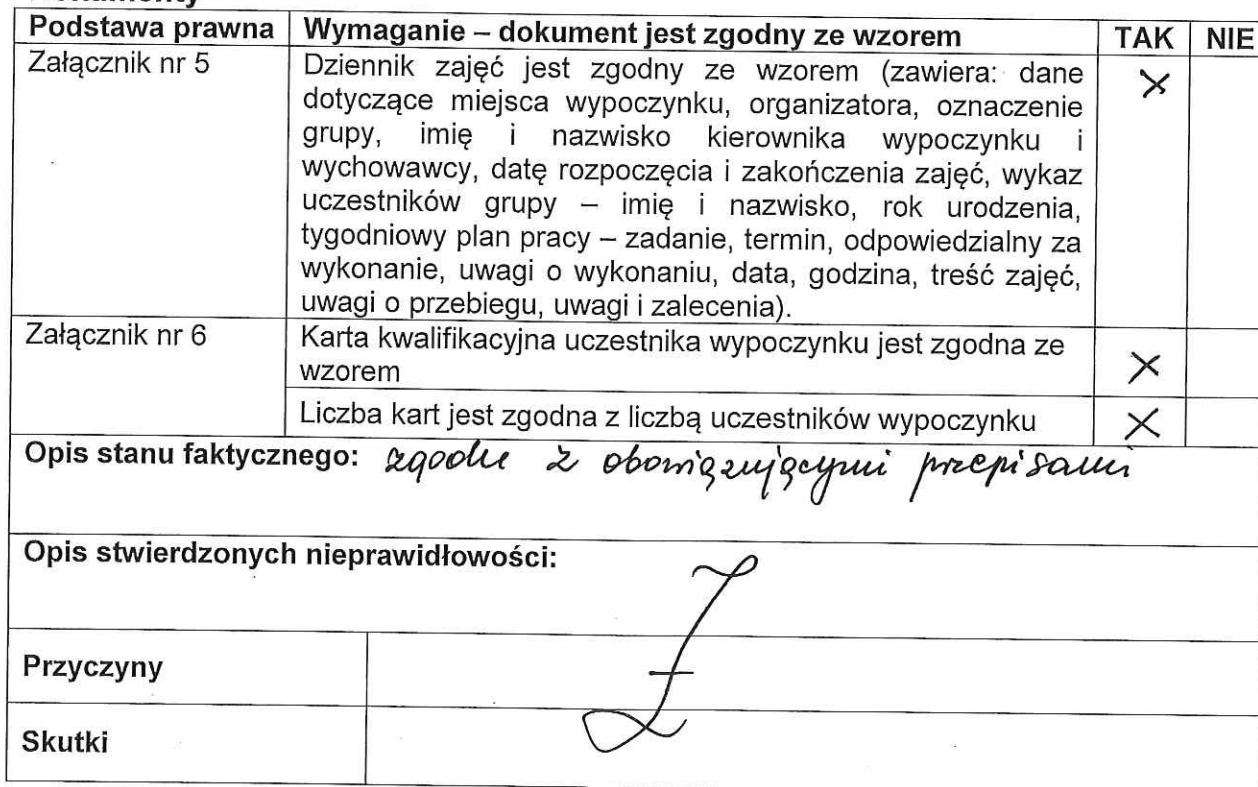 Podstawa prawna Wymaganie – dokument jest zgodny ze wzorem TAK NIE
Załącznik nr 5 Dziennik zajęć jest zgodny ze wzorem (zawiera: dane ×
dotyczące miejsca wypoczynku, organizatora, oznaczenie
grupy, imię i nazwisko kierownika wypoczynku i
wychowawcy, datę rozpoczęcia i zakończenia zajęć, wykaz
uczestników grupy – imię i nazwisko, rok urodzenia,
tygodniowy plan pracy – zadanie, termin, odpowiedzialny za
wykonanie, uwagi o wykonaniu, data, godzina, treść zajęć,
uwagi o przebiegu, uwagi i zalecenia).
Załącznik nr 6 Karta kwalifikacyjna uczestnika wypoczynku jest zgodna ze
wzorem ×
Liczba kart jest zgodna z liczbą uczestników wypoczynku ×
Opis stanu faktycznego: zgodne z obowiązującymi przepisami
Opis stwierdzonych nieprawidłowości:
Przyczyny
Skutki